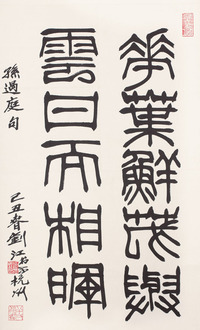 華葉鮮茂與
雲日而相暉
孫過庭句
己丑春劉江於杭州